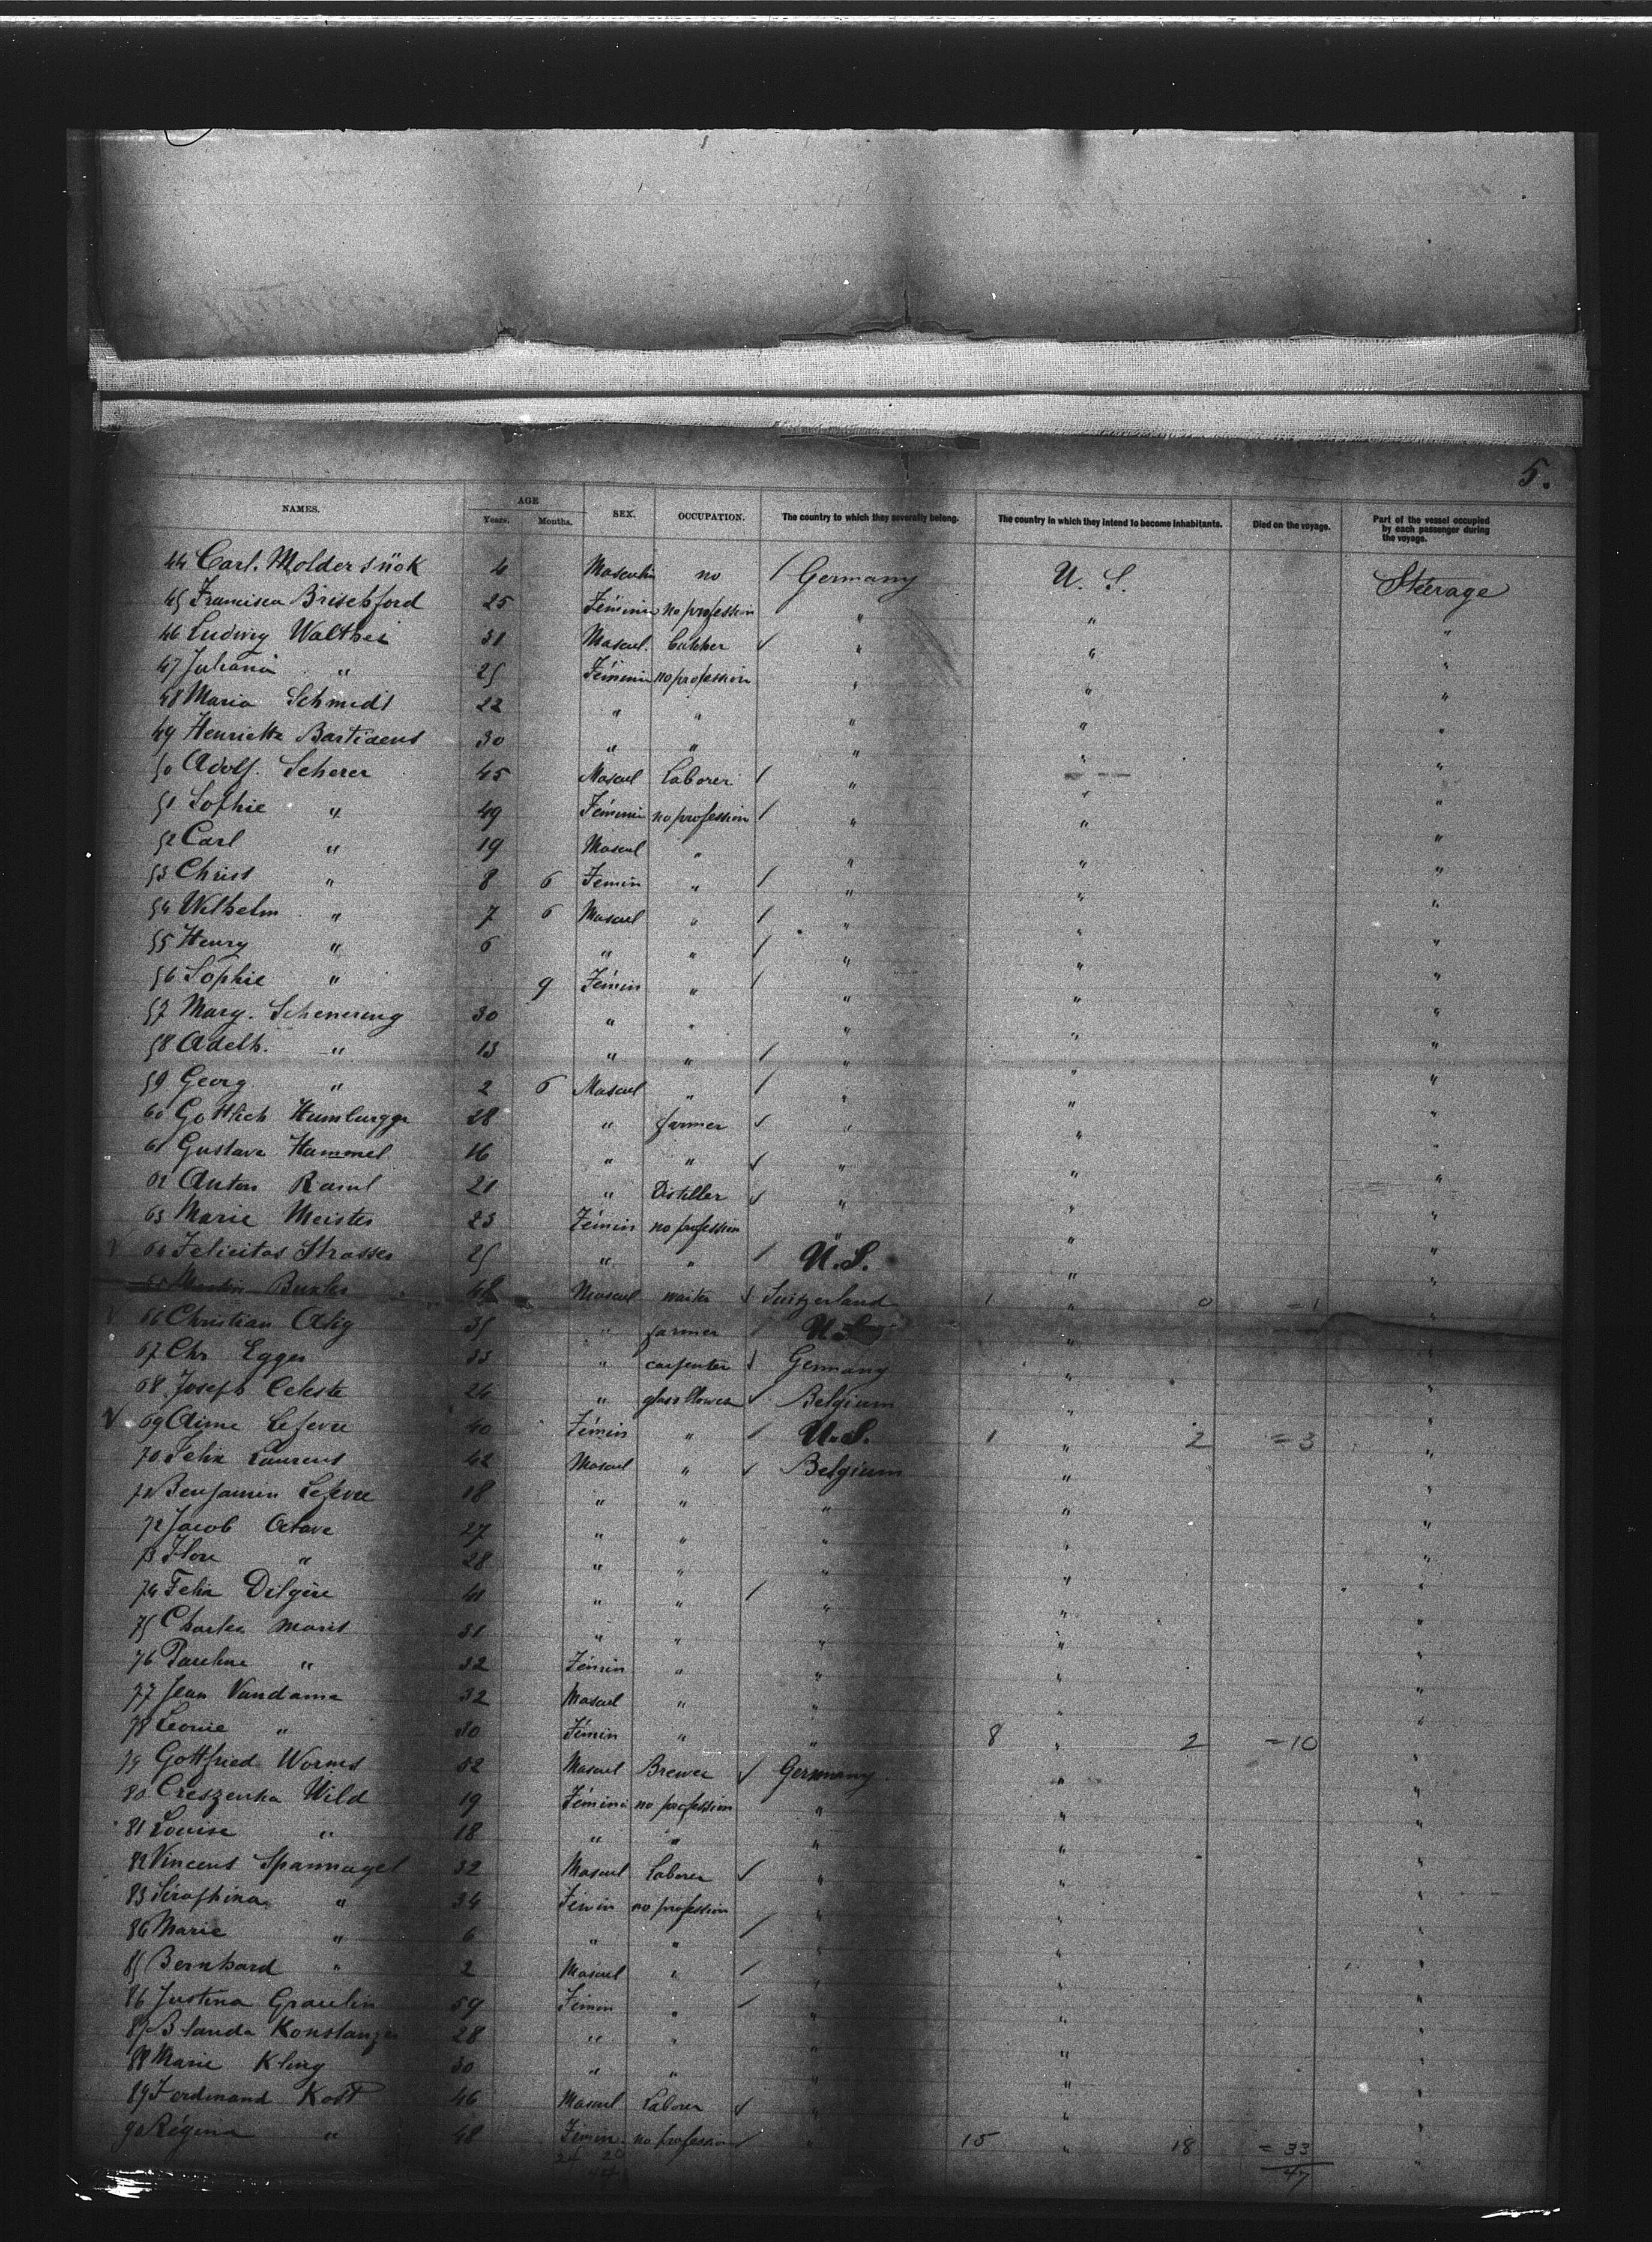 5.
NAMES. AGE Years. Months. SEX. OCCUPATION. The country to which they severally belong. The country in which they intend to become inhabitants. Died on the voyage. Part of the vessel occupied by each passenger during the voyage.
44 Carl. 4 no / Germany U. S. Steerage
45 Francisca 25 Féminin no profession " " "
46 Ludwig 31 Mascul. ✓ " " "
47 Juliana " 25 Féminin no profession " " "
48 Maria Schmidt 22 " " " " "
49 Henriette 30 " " " " "
50 Adolf. Scherer 45 Mascul Laborer / " " "
51 Sophie " 49 Féminin no profession / " " "
52 Carl " 19 Mascul " " " "
53 Christ " 8 6 Femin " / " " "
54 Wilhelm " 7 6 Mascul " / " " "
55 Henry " 6 " " / " " "
56 Sophie " 9 Fémin " / " " "
57 Marg. 30 " " " " "
58 Adelh. " 13 " " / " " "
59 Georg " 2 6 Mascul " / " " "
60 28 " farmer ✓ " " "
61 Gustave Hammel 16 " " ✓ " " "
62 Anton 21 " Distiller ✓ " " "
63 Marie Meister 23 Fémin no profession " " "
✓ 64 Felicitas Strasser 25 " " / U.S. " "
65 Martin 48 Mascul waiter ✓ Suitzerland 1 " 0 =1 "
✓ 66 Christian 35 " farmer / U.S. " "
67 Chr Egger 33 " carpenter ✓ Germany " "
68 Joseph Celeste 26 " glassblower ✓ Belgium " "
✓ 69 Aime Lefevre 40 Fémin " / U.S. 1 " 2 =3 "
70 Felix Laurent 42 Mascul " ✓ Belgium " "
71 Benjamin Lefevre 18 " " " " "
72 Jacob Octave 27 " " " " "
73 Flore " 28 " " " " "
74 Felix 41 " " / " " "
75 Charles 31 " " " " "
76 Pauline " 32 Fémin " " " "
77 Jean Vandama 32 Mascul " " " "
78 Leonie " 30 Fémin " " 8 " 2 =10 "
79 Gottfried Worms 52 Mascul Brewer ✓ Germany " "
80 Wild 19 Fémini no profession " " "
81 Louise " 18 " " " " "
82 Vincent Spannagel 32 Mascul Laborer ✓ " " "
83 Séraphina " 34 Fémin no profession " " "
84 Marie " 6 " " / " " "
85 Bernhard " 2 Mascul " / " " "
86 Justina 59 Fémin " / " " "
87 28 " " " " "
88 Marie Kling 30 " " " " "
89 Ferdinand Kost 46 Mascul Laborer ✓ " " "
90 Régina " 48 Fémin. no profession / " 15 " 18 = 33 "
47